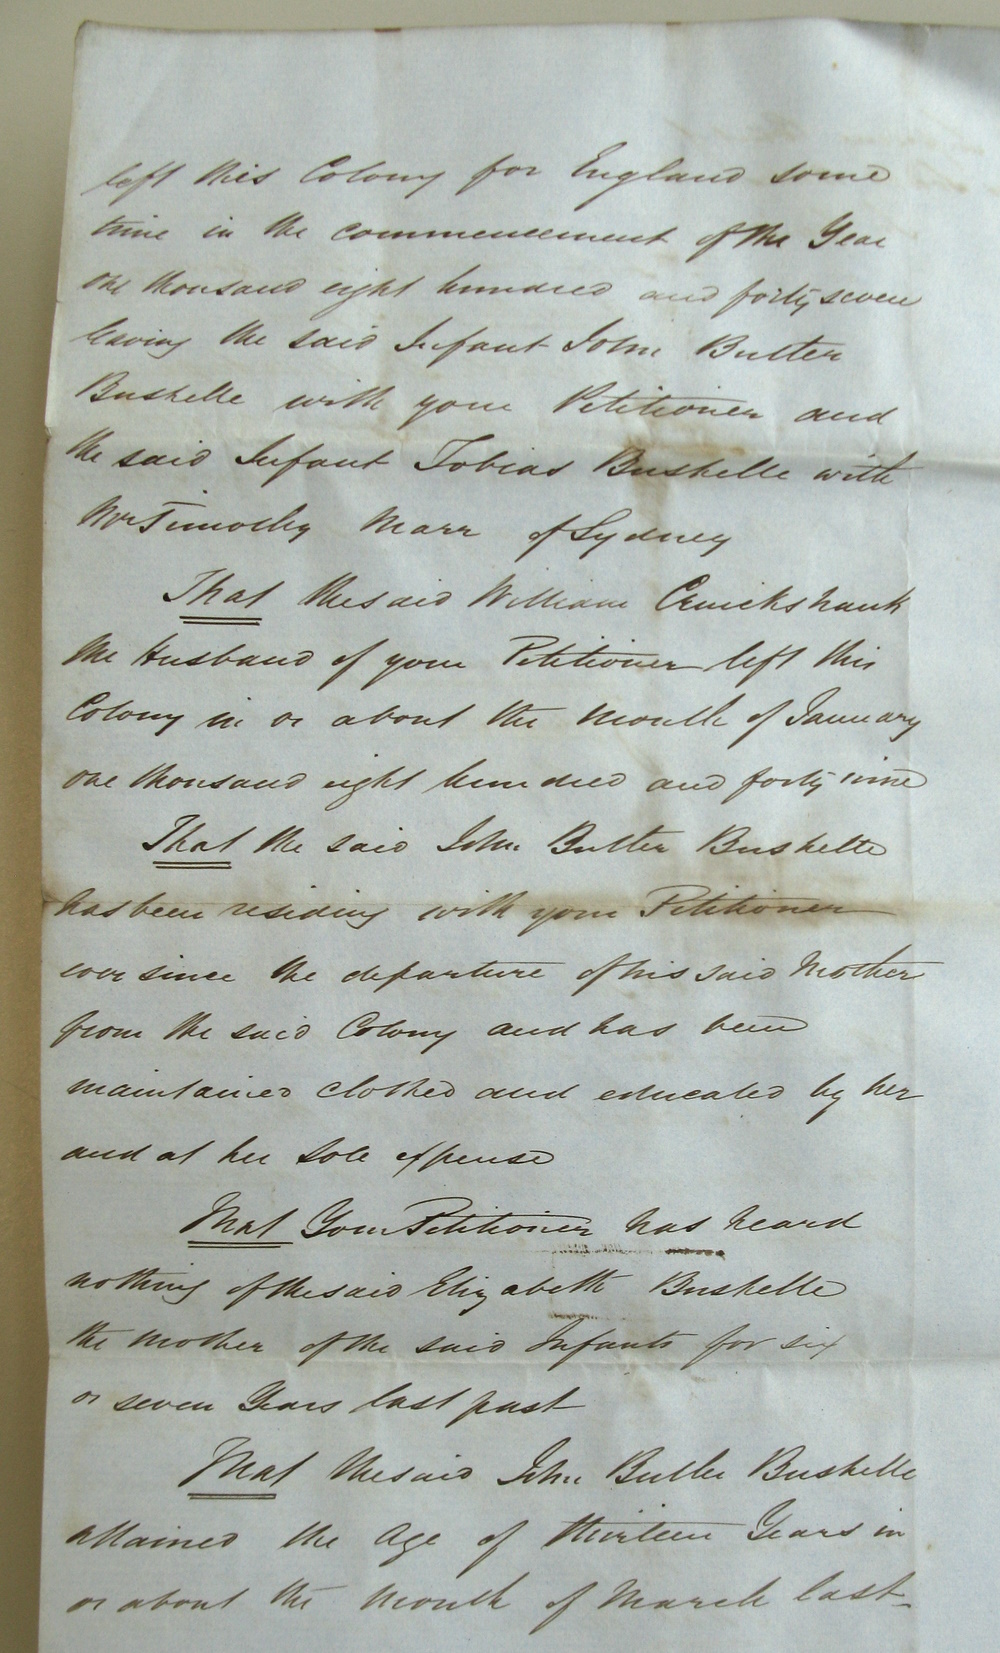 left this Colony for England some
time in the commencement of the Year
one thousand eight hundred and forty seven
leaving the said Infant John Butler
Bushelle with your Petitioner and
the said Infant Tobias Bushelle with
Mr Timothy Marr of Sydney
That the said William Cruickshank
the Husband of your Petitioner left this
Colony in or about the month of January
one thousand eight hundred and forty nine
That the said John Butler Bushelle
has been residing with your Petitioner
ever since the departure of his said Mother
from the said Colony and has been
maintained clothed and educated by her
and at her sole expense
That Your Petitioner has heard
nothing of the said Elizabeth Bushelle
the Mother of the said Infants for six
or seven Years last past
That the said John Butler Bushelle
attained the Age of thirteen Years in
or about the Month of March last